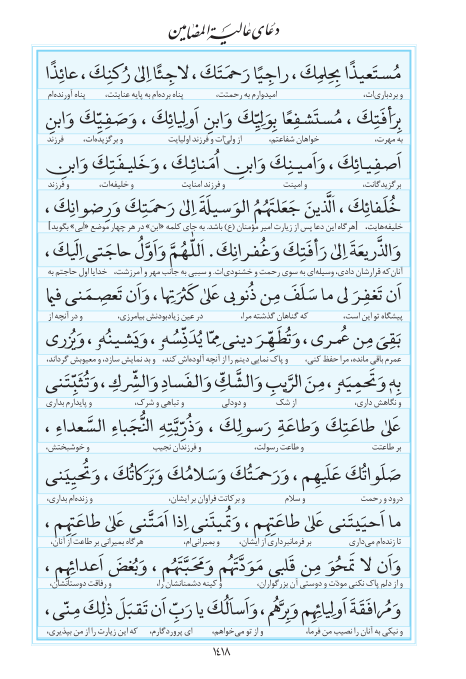 دعای عالیة المضامین
مُستَعیذًا بِحِلمِكَ ، راجِیًا رَحمَتَكَ ، لاجِئًا اِلیٰ رُکنِكَ ، عائِذًا
و بردباری‌ات، امیدوارم به رحمتت، پناه برده‌ام به پایه عنایتت، پناه آورنده‌ام
بِرَأفَتِكَ ، مُستَشفِعًا بِوَلِیِّكَ وَابنِ اَولِیائِكَ ، وَصَفِیِّكَ وَابنِ
به مهرت، خواهان شفاعتم، از ولی‌ات و فرزند اولیایت و برگزیده‌ات، فرزند
اَصفِیائِكَ ، وَاَمینِكَ وَابنِ اُمَنائِكَ ، وَخَلیفَتِكَ وَابنِ
برگزیدگانت، و امینت و فرزند امنایت و خلیفه‌ات، و فرزند
خُلَفائِكَ ، الَّذینَ جَعَلتَهُمُ الوَسیلَةَ اِلیٰ رَحمَتِكَ وَرِضوانِكَ ،
خلیفه‌هایت، [هرگاه این دعا پس از زیارت امیر مؤمنان (ع) باشد، به جای کلمه «ابن» در هر چهار موضع «أبی» بگوید]
وَالذَّریعَةَ اِلیٰ رَأفَتِكَ وَغُفرانِكَ . اَللّٰهُمَّ وَاَوَّلُ حاجَتی اِلَیكَ ،
آنان که قرارشان دادی، وسیله‌ای به سوی رحمت و خشنودی‌ات و سببی به جانب مهر و آمرزشت، خدایا اول حاجتم به
اَن تَغفِرَ لی ما سَلَفَ مِن ذُنوبی عَلیٰ کَثرَتِها ، وَاَن تَعصِمَنی فیما
پیشگاه تو این است، که گناهان گذشته مرا، در عین زیاد‌بودنش بیامرزی، و در آنچه از
بَقِیَ مِن عُمری ، وَتُطَهِّرَ دینی مِمّا یُدَنِّسُهُ ، وَیَشینُهُ ، وَیُزری
عمرم باقی مانده، مرا حفظ کنی، و پاک نمایی دینم را از آنچه آلوده‌اش کند، و بد نمایش سازد، و معیوبش گرداند،
بِهِ وَتَحمِیَهُ ، مِنَ الرَّیبِ وَالشَّكِّ وَالفَسادِ وَالشِّركِ ، وَتُثَبِّتَنی
و نگاهش داری، از شک و دودلی و تباهی و شرک، و پایدارم بداری
عَلیٰ طاعَتِكَ وَطاعَةِ رَسولِكَ ، وَذُرِّیَّتِهِ النُّجَباءِ السُّعَداءِ ،
بر طاعتت و طاعت رسولت، و فرزندان نجیب و خوشبختش،
صَلَواتُكَ عَلَیهِم ، وَرَحمَتُكَ وَسَلامُكَ وَبَرَکاتُكَ ، وَتُحیِیَنی
درود و رحمت و سلام و برکاتت فراوان بر ایشان، و زنده‌ام بداری،
ما اَحیَیتَنی عَلیٰ طاعَتِهِم ، وَتُمیتَنی اِذا اَمَتَّنی عَلیٰ طاعَتِهِم ،
تا زنده‌ام می‌داری بر فرمانبرداری از ایشان، و بمیرانی‌ام، هرگاه بمیرانی بر طاعت از آنان،
وَاَن لا تَمحُوَ مِن قَلبی مَوَدَّتَهُم وَمَحَبَّتَهُم ، وَبُغضَ اَعدائِهِم ،
و از دلم پاک نکنی مودّت و دوستی آن بزرگواران، و کینه دشمنانشان را، و رفاقت دوستانشان،
وَمُرافَقَةَ اَولِیائِهِم وَبِرَّهُم ، وَاَسأَلُكَ یا رَبِّ اَن تَقبَلَ ذٰلِكَ مِنّی ،
و نیکی به آنان را نصیب من فرما، و از تو می‌خواهم، ای پروردگارم، که این زیارت را از من بپذیری،
۱٤۱۸